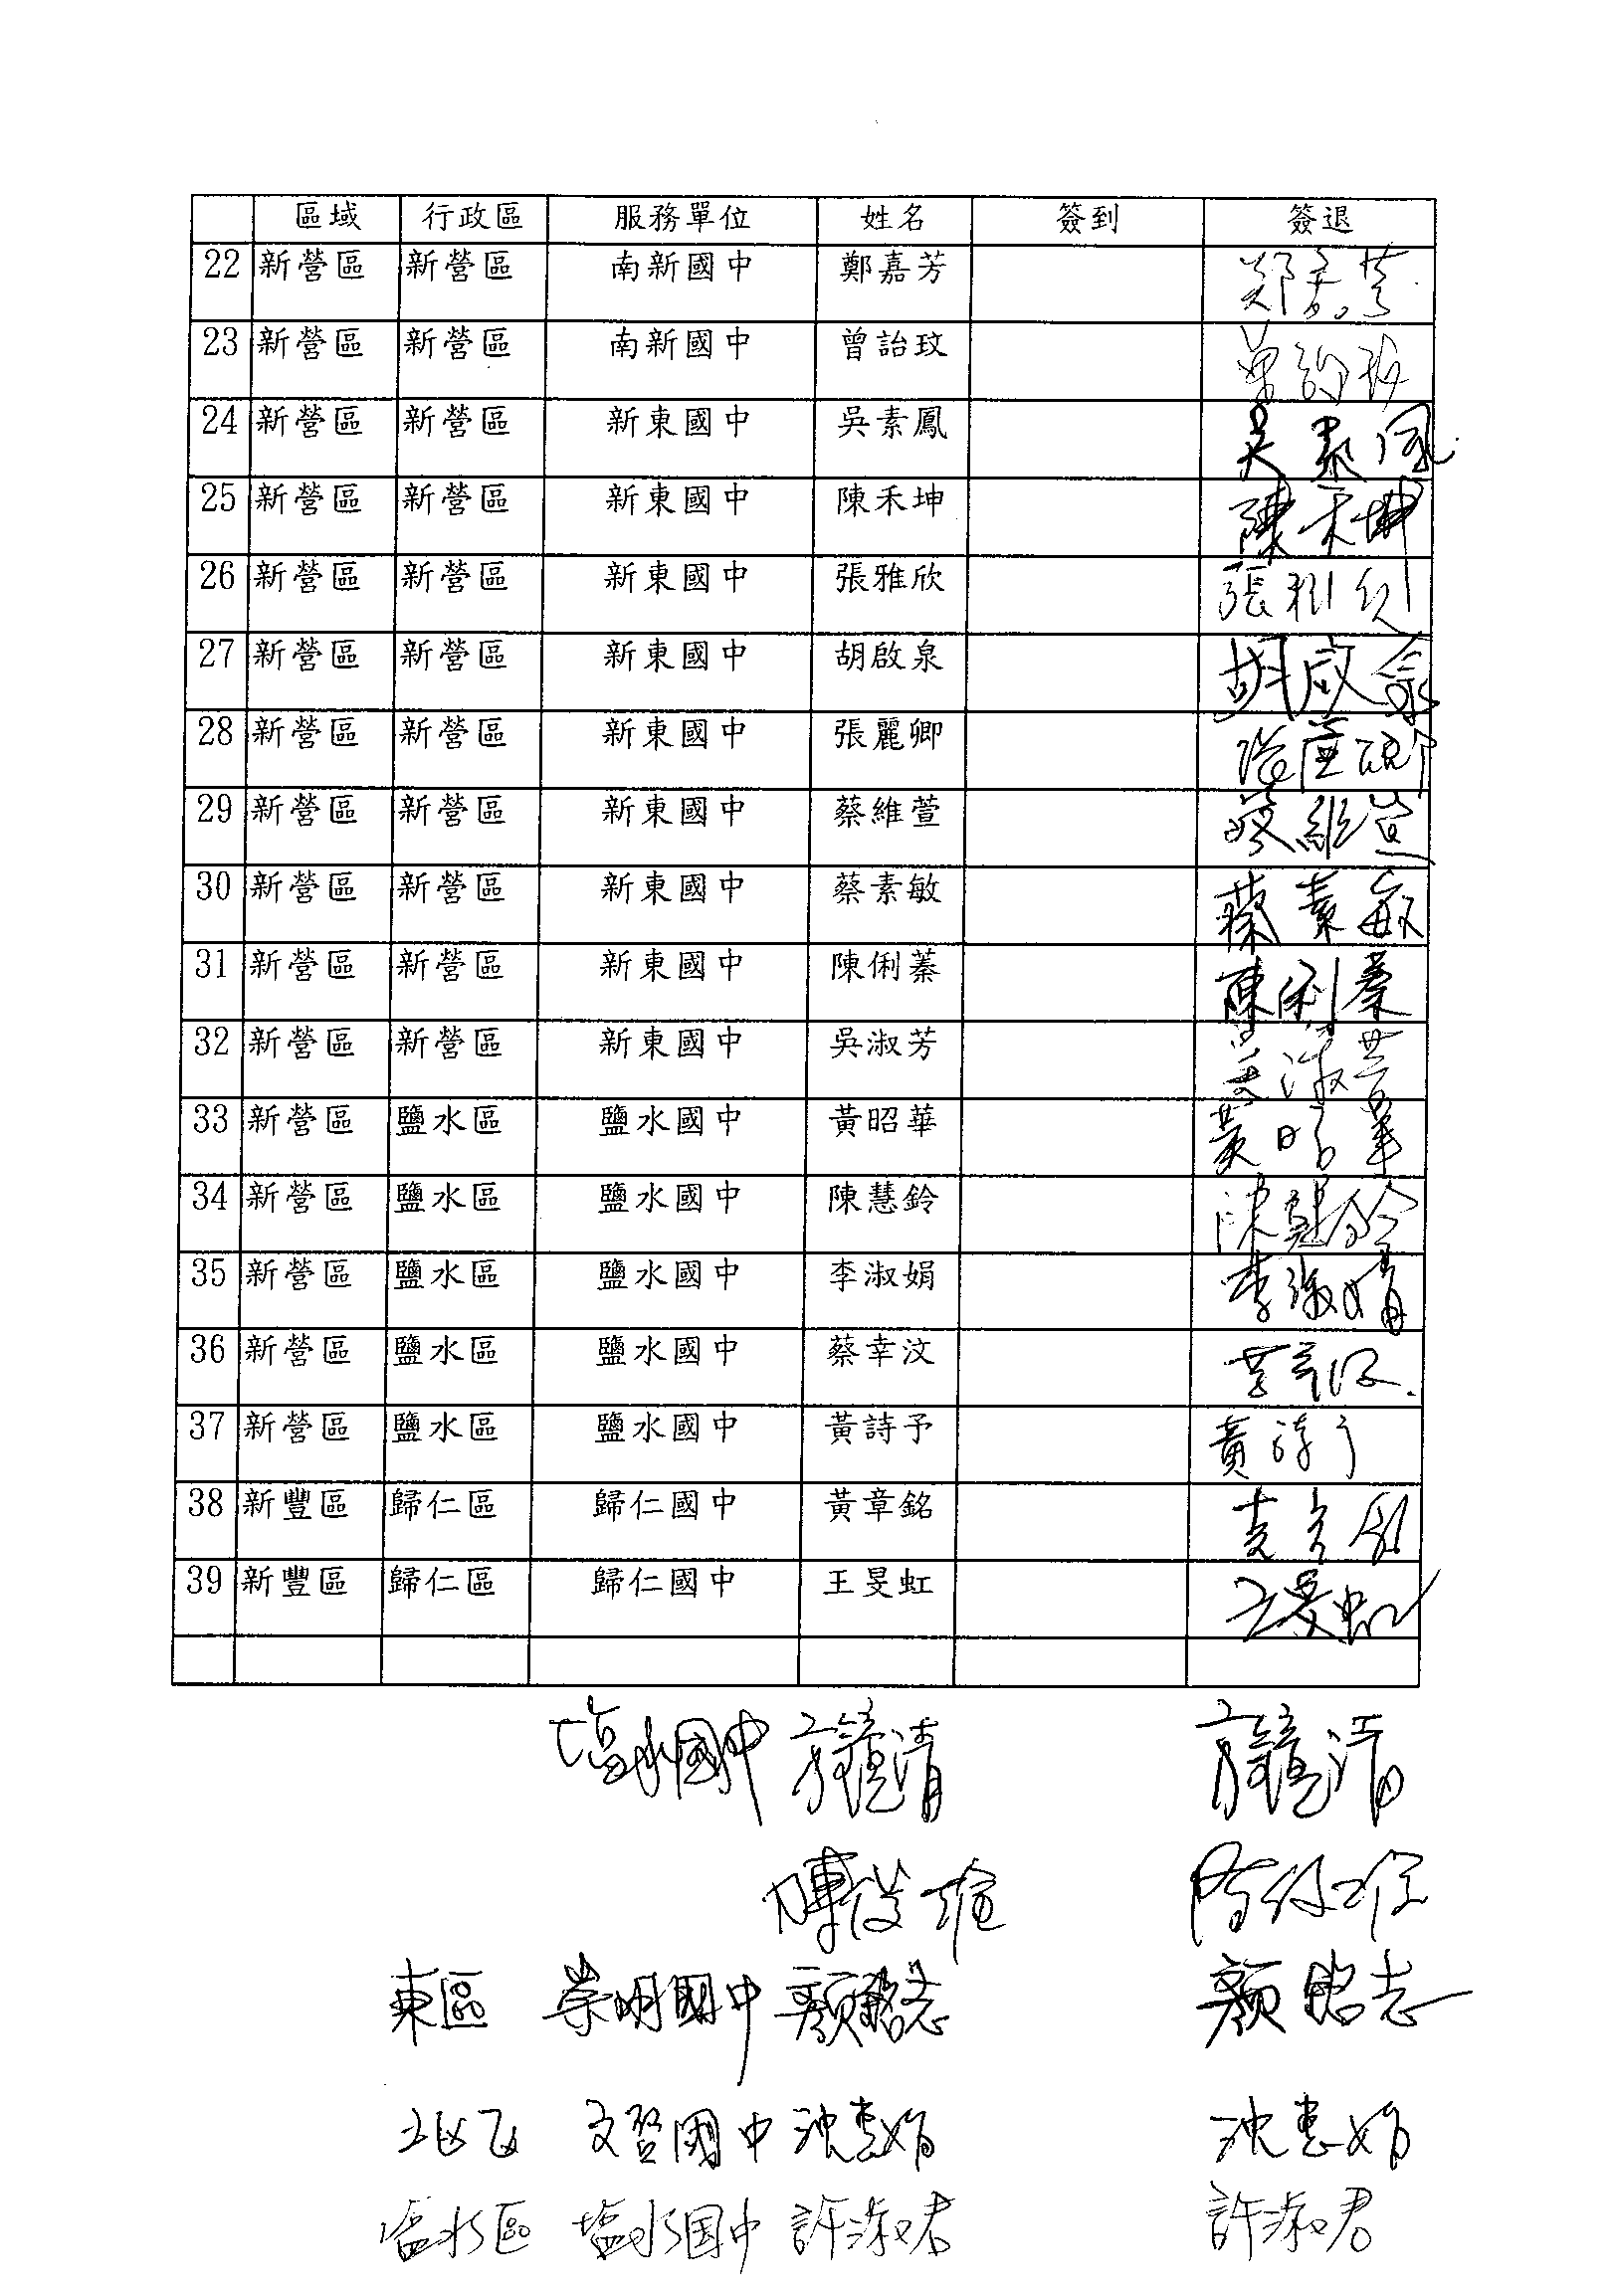 區域 行政區 服務單位 姓名 簽到 簽退
22 新營區 新營區 南新國中 鄭嘉芳 鄭嘉芳
23 新營區 新營區 南新國中 曾詒玟 曾詒玟
24 新營區 新營區 新東國中 吳素鳳 吳素鳳
25 新營區 新營區 新東國中 陳禾坤 陳禾坤
26 新營區 新營區 新東國中 張雅欣 張雅欣
27 新營區 新營區 新東國中 胡啟泉 胡啟泉
28 新營區 新營區 新東國中 張麗卿 張麗卿
29 新營區 新營區 新東國中 蔡維萱 蔡維萱
30 新營區 新營區 新東國中 蔡素敏 蔡素敏
31 新營區 新營區 新東國中 陳俐蓁 陳俐蓁
32 新營區 新營區 新東國中 吳淑芳 吳淑芳
33 新營區 鹽水區 鹽水國中 黃昭華 黃昭華
34 新營區 鹽水區 鹽水國中 陳慧鈴 陳慧鈴
35 新營區 鹽水區 鹽水國中 李淑娟 李淑娟
36 新營區 鹽水區 鹽水國中 蔡幸汶 蔡幸汶
37 新營區 鹽水區 鹽水國中 黃詩予 黃詩予
38 新豐區 歸仁區 歸仁國中 黃章銘 黃章銘
39 新豐區 歸仁區 歸仁國中 王旻虹 王旻虹
塩水國中
東區 崇明國中 顏銘志 顏銘志
北区 文賢國中 沈惠娟 沈惠娟
塩水區 塩水国中 許淑君 許淑君